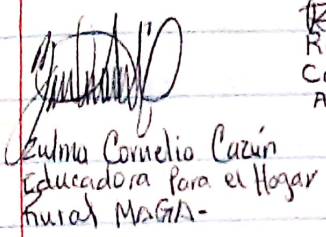 R
C
A
Zulma Cornelio Cazún
Educadora Para el Hogar
Rural MAGA-